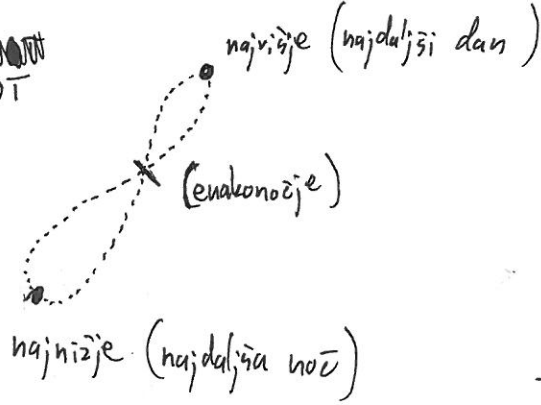 najvišje (najdaljši dan)
(enakonočje)
najnižje (najdaljša noč)